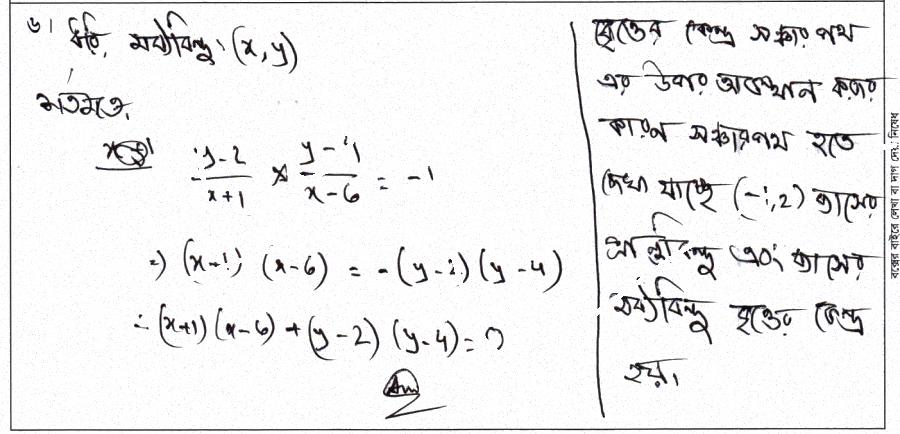 ৬। ধরি, মধ্যবিন্দু (x, y)
শর্তমতে,
y-2/x+1 × y-4/x-6 = -1
⇒ (x+1) (x-6) = -(y-2) (y-4)
∴ (x+1) (x-6) + (y-2) (y-4) = 0
Ans
বৃত্তের কেন্দ্র সঞ্চার পথ
এর উপর অবস্থান করার
কারণ সঞ্চারপথ হতে
দেখা যাচ্ছে (-1,2) ব্যাসের
প্রান্তবিন্দু এবং ব্যাসের
মধ্যবিন্দু বৃত্তের কেন্দ্র
হয়।
বক্সের বাইরে লেখা বা দাগ দেয়া নিষেধ